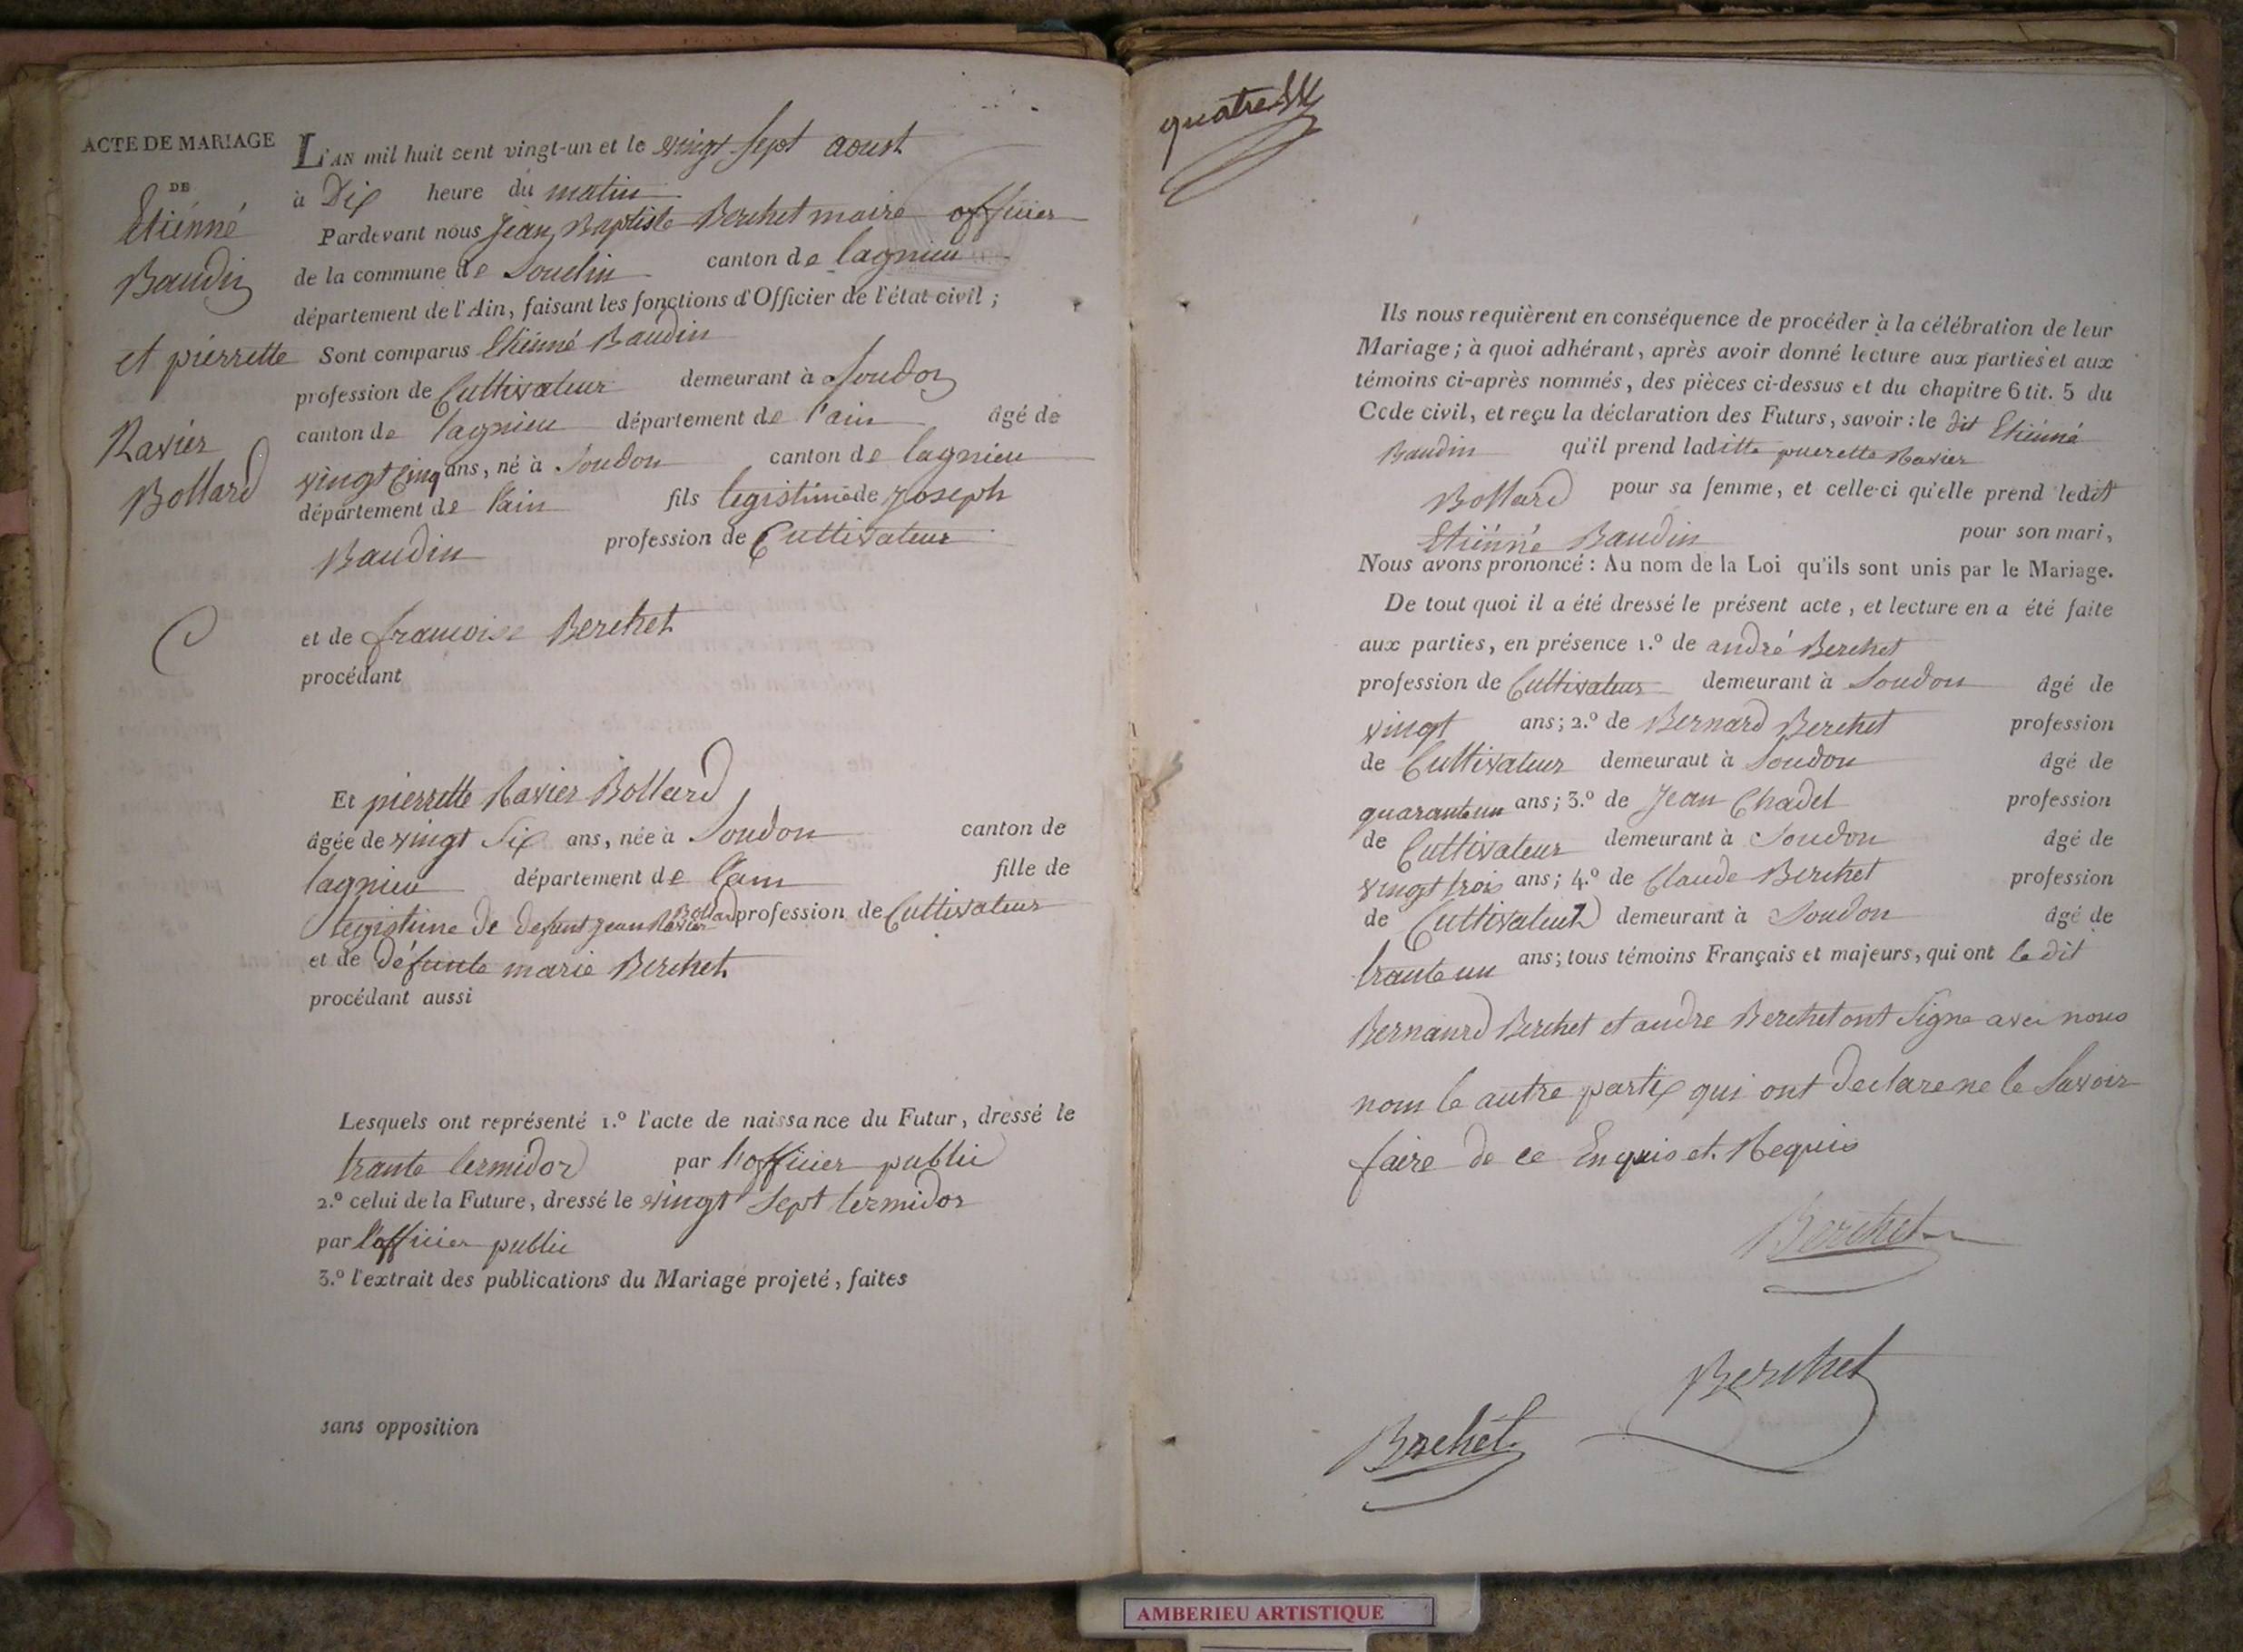 ACTE DE MARIAGE
DE
Etiénné
Baudin
et piérrette
Ravier
Bottard
L'AN mil huit cent vingt-un et le vingt sept aoust
à Dix heure du matin
Pardevant nous Jean Baptiste Berchet maire officier
de la commune de Soudin canton de lagnieu
département de l'Ain, faisant les fonctions d'Officier de l'état civil ;
Sont comparus Etiénné Baudin
profession de Cultivateur demeurant à Soudon
canton de lagnieu département de l'ain âgé de
vingt Cinq ans, né à Soudon canton de lagnieu
département de l'ain fils legistime de Joseph
Baudin profession de Cultivateur
et de francoise Berchet
procédant
Et piérrette Ravier Bottard
âgée de vingt Six ans, née à Soudon canton de
lagnieu département de l'ain fille de
legistime de defunt Jean Ravier Bottard profession de Cultivateur
et de défunte marie Berchet
procédant aussi
Lesquels ont représenté 1.º l'acte de naissance du Futur, dressé le
trante termidor par l'officier public
2.º celui de la Future, dressé le vingt Sept termidor
par l'officier public
3.º l'extrait des publications du Mariage projeté, faites
sans opposition
quatre
Ils nous requièrent en conséquence de procéder à la célébration de leur
Mariage ; à quoi adhérant, après avoir donné lecture aux parties et aux
témoins ci-après nommés, des pièces ci-dessus et du chapitre 6 tit. 5 du
Code civil, et reçu la déclaration des Futurs, savoir : le dit Etiénné
Baudin qu'il prend laditte pierrette Ravier
Bottard pour sa femme, et celle-ci qu'elle prend ledit
Etiénné Baudin pour son mari,
Nous avons prononcé : Au nom de la Loi qu'ils sont unis par le Mariage.
De tout quoi il a été dressé le présent acte, et lecture en a été faite
aux parties, en présence 1.º de andré Berchet
profession de Cultivateur demeurant à Soudon âgé de
vingt ans ; 2.º de Bernard Berchet profession
de Cultivateur demeurant à Soudon âgé de
quarante un ans ; 3.º de Jean Chadel profession
de Cultivateur demeurant à Soudon âgé de
vingt trois ans ; 4.º de Claude Berchet profession
de Cultivateur demeurant à Soudon âgé de
trante un ans ; tous témoins Français et majeurs, qui ont le dit
Bernaurd Berchet et andre Berchet ont Signe avec nous
nom le autre partix qui ont declare ne le Savoir
faire de ce Enquis et Requis
Berchet
Berchet
Berchet
AMBERIEU ARTISTIQUE